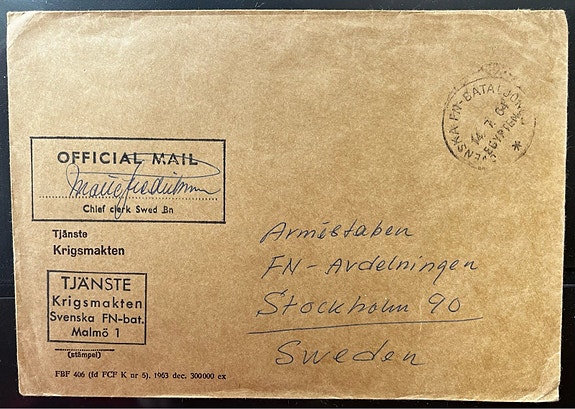 SVENSKA FN-BATALJONEN
14. 7. 64
EGYPTEN
*
OFFICIAL MAIL
Chief clerk Swed .Bn
Tjänste
Krigsmakten
TJÄNSTE
Krigsmakten
Svenska FN-bat.
Malmö 1
(stämpel)
FBF 406 (fd FCF K nr 5). 1963 dec. 300000 ex
Arméstaben
FN-Avdelningen
Stockholm 90
Sweden